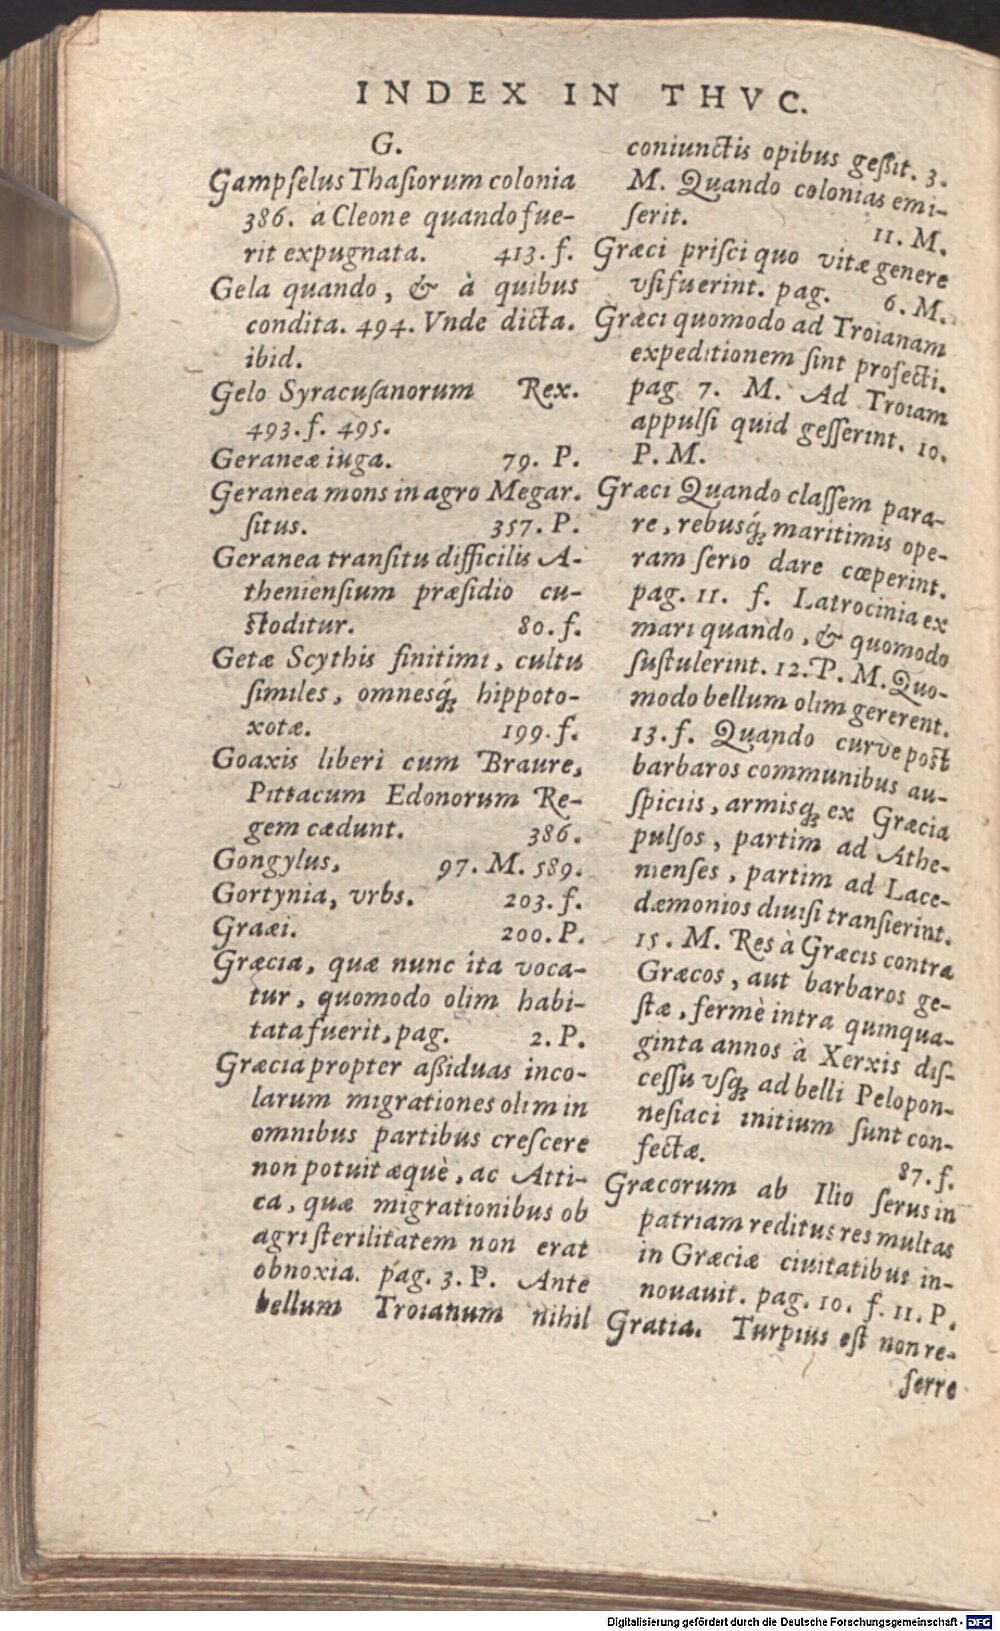 INDEX IN THVC.
G.
Gampſelus Thaſiorum colonia
386. à Cleone quando fue-
rit expugnata. 413. f.
Gela quando, & à quibus
condita. 494. Vnde dicta.
ibid.
Gelo Syracuſanorum Rex.
493. f. 495.
Geraneæ iuga. 79. P.
Geranea mons in agro Megar.
ſitus. 357. P.
Geranea tranſitu difficilis A-
thenienſium præſidio cu-
ſtoditur. 80. f.
Getæ Scythis finitimi, cultu
ſimiles, omnesq́ꝫ hippoto-
xotæ. 199. f.
Goaxis liberi cum Braure,
Pittacum Edonorum Re-
gem cædunt. 386.
Gongylus, 97. M. 589.
Gortynia, vrbs. 203. f.
Graæi. 200. P.
Græcia, quæ nunc ita voca-
tur, quomodo olim habi-
tata fuerit, pag. 2. P.
Græcia propter aßiduas inco-
larum migrationes olim in
omnibus partibus creſcere
non potuit æquè, ac Atti-
ca, quæ migrationibus ob
agri ſterilitatem non erat
obnoxia. pag. 3. P. Ante
bellum Troianum nihil
coniunctis opibus geßit. 3.
M. Quando colonias emi-
ſerit. 11. M.
Græci priſci quo vitæ genere
vſi fuerint. pag. 6. M.
Græci quomodo ad Troianam
expeditionem ſint profecti.
pag 7. M. Ad Troiam
appulſi quid geſſerint. 10.
P. M.
Græci Quando claſſem para-
re, rebusq́ꝫ maritimis ope-
ram ſerio dare cœperint.
pag. 11. f. Latrocinia ex
mari quando, & quomodo
ſuſtulerint. 12. P. M. Quo-
modo bellum olim gererent.
13. f. Quando curve poſt
barbaros communibus au-
ſpiciis, armisqꝫ ex Græcia
pulſos, partim ad Athe-
nienſes, partim ad Lace-
dæmonios diuiſi tranſierint.
15. M. Res à Græcis contra
Græcos, aut barbaros ge-
ſtæ, fermè intra quinqua-
ginta annos à Xerxis diſ-
ceſſu vſqꝫ ad belli Pelopon-
neſiaci initium ſunt con-
fectæ. 87. f.
Græcorum ab Ilio ſerus in
patriam reditus res multas
in Græciæ ciuitatibus in-
nouauit. pag. 10. f. 11. P.
Gratia. Turpius eſt non re-
ferre
Digitalisierung gefördert durch die Deutsche Forschungsgemeinschaft - DFG